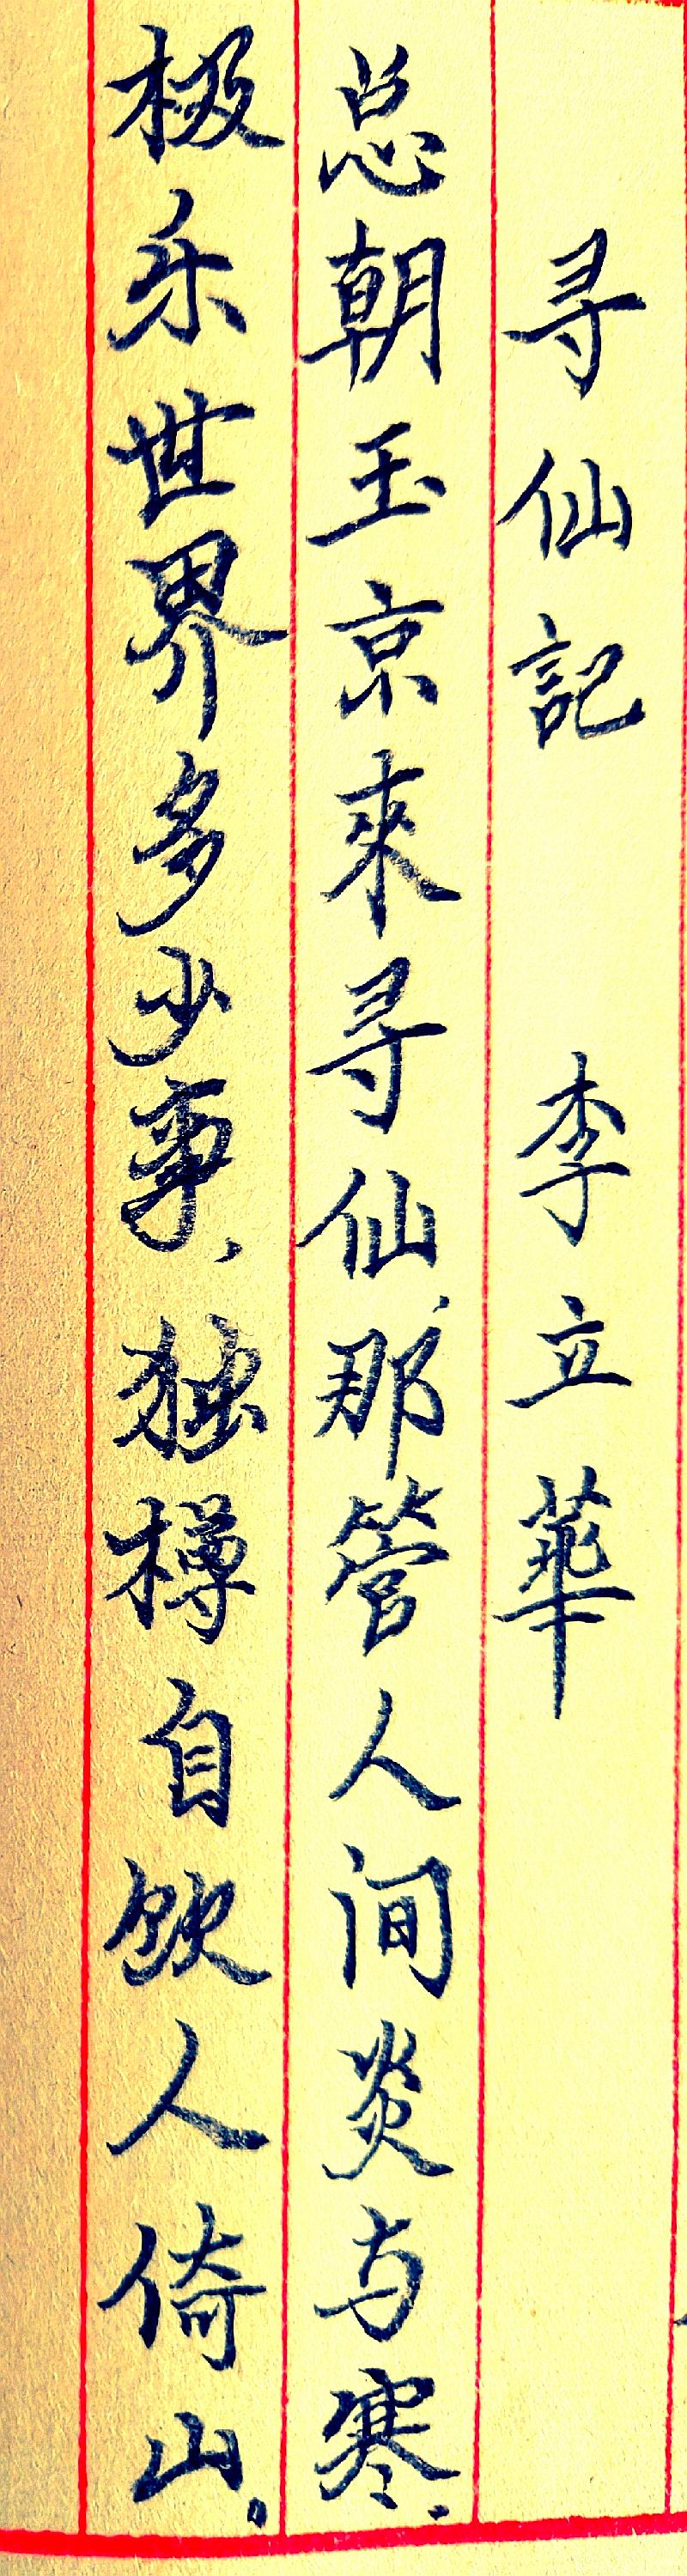 寻仙記 李立華
总朝玉京來寻仙,那管人间炎与寒.
极乐世界多少事,独樽自饮人倚山。